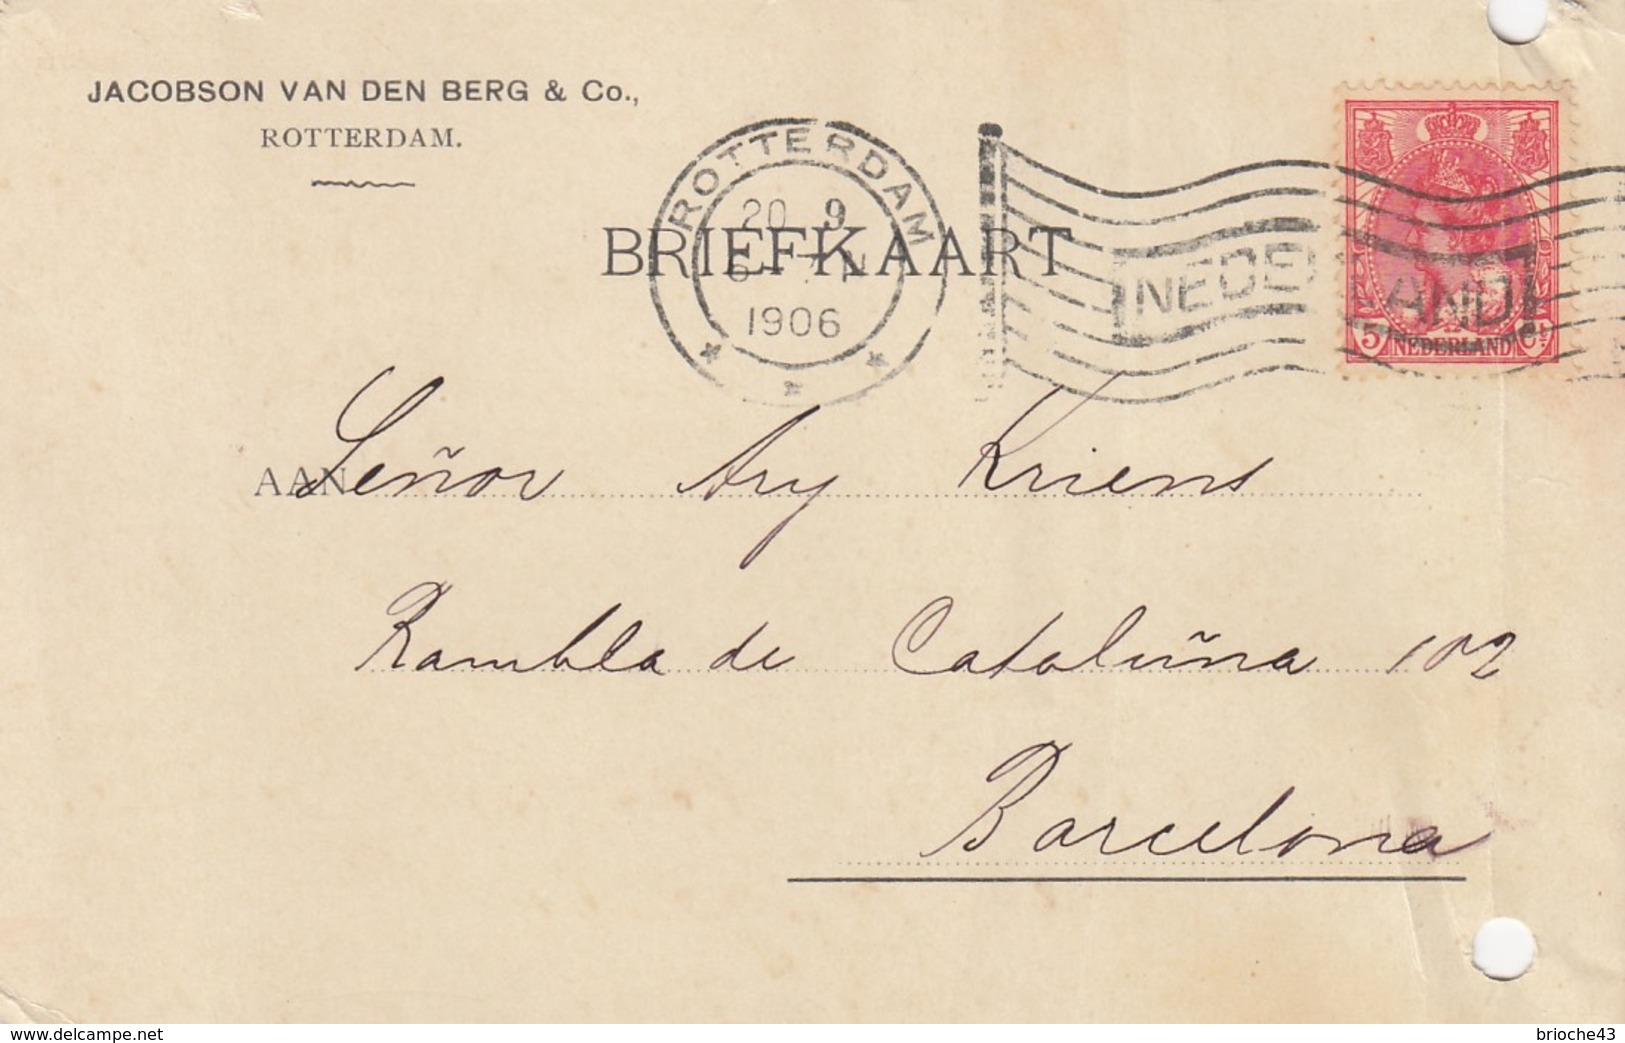 JACOBSON VAN DEN BERG & Co.,
ROTTERDAM.
ROTTERDAM
20 9
1906
BRIEFKAART
NEDERLAND
5 NEDERLAND Ct
AAN Señor Ary Kriens
Rambla de Cataluña 102
Barcelona
delcampe.net
brioche43